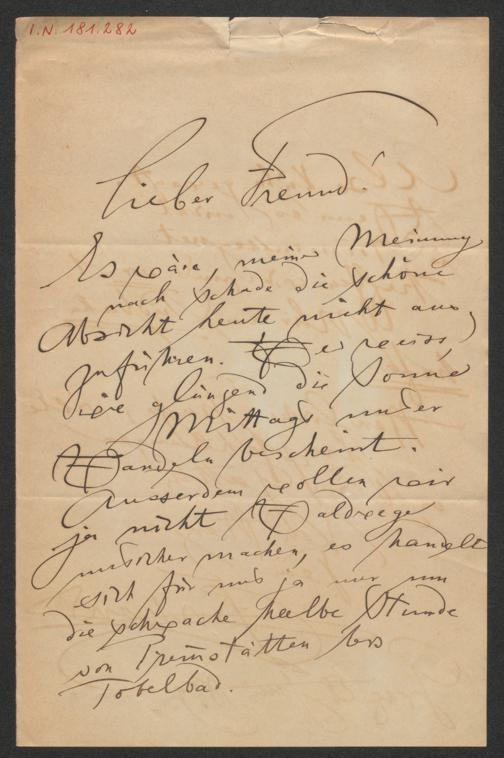 I.N. 181.282
Lieber Freund!
Es wäre, meiner Meinung
nach schade die schöne
Absicht heute nicht aus
zuführen. Wer weiss,
wie glänzend die Sonne
Mittags unser
Wandeln bescheint.
Ausserdem wollen wir
ja nicht Waldwege
unsicher machen, es handelt
sich für uns ja nur um
die schwache halbe Stunde
von Premstätten bis
Tobelbad.